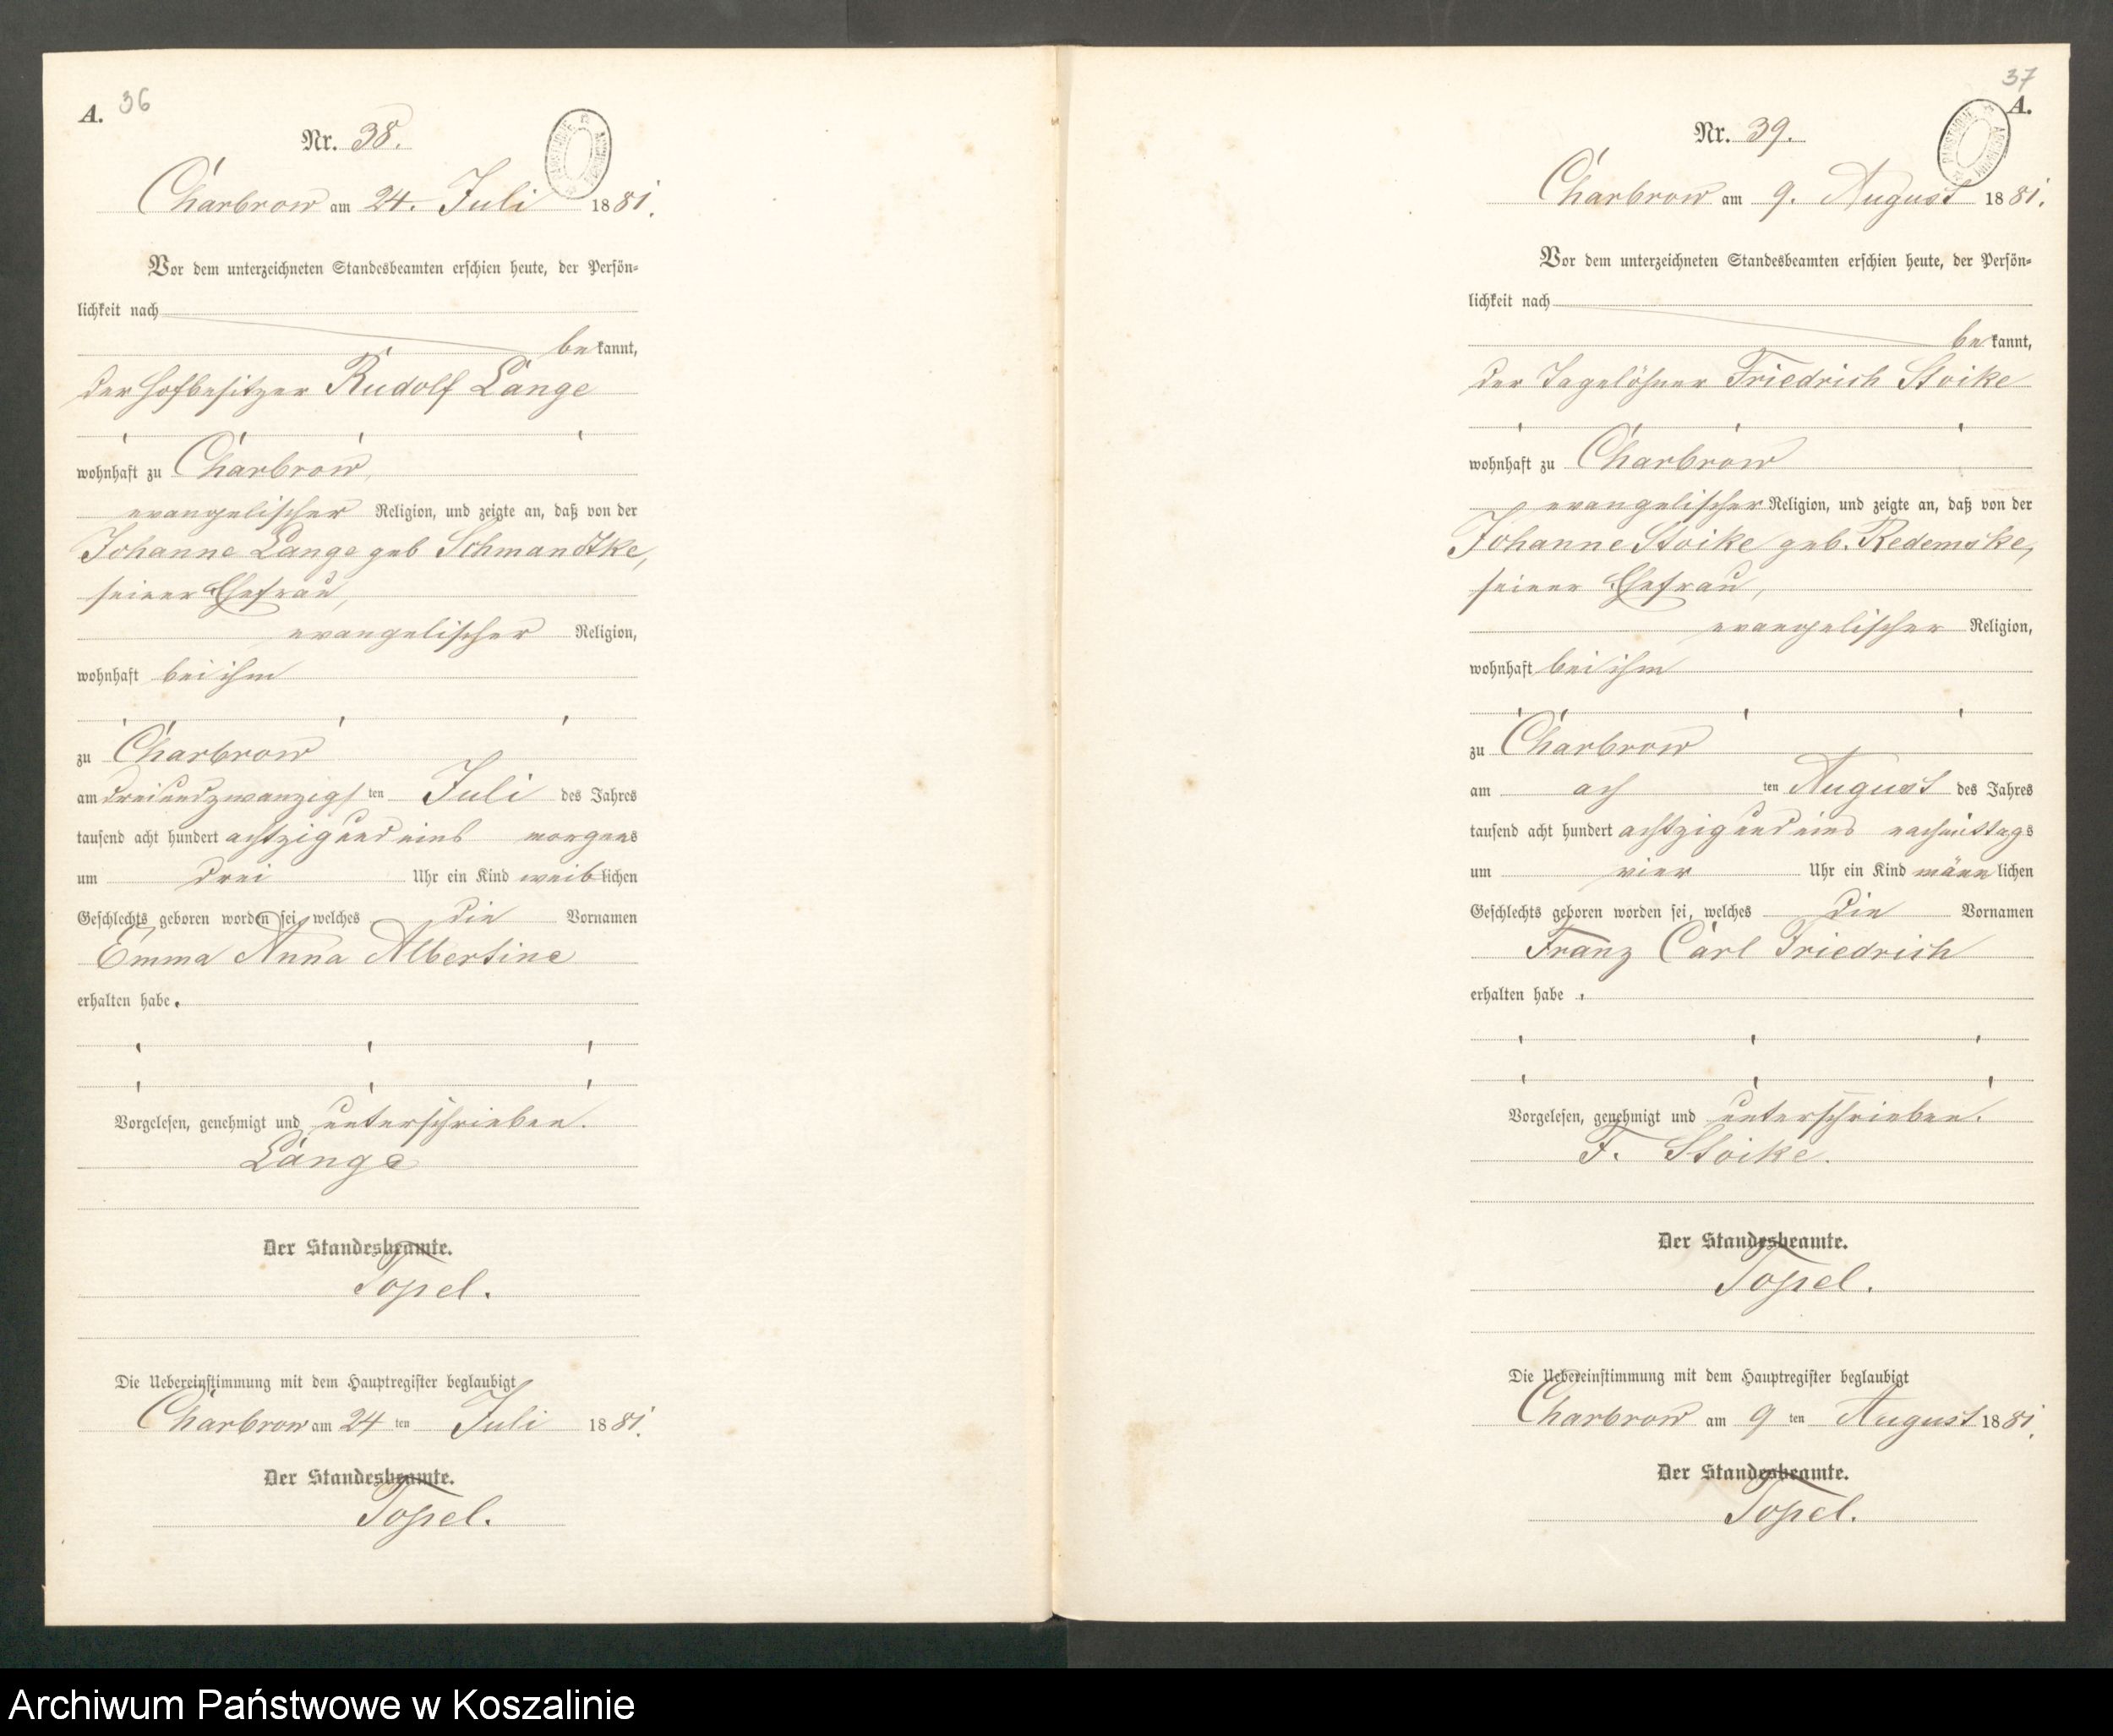 A. 36
Nr. 38.
Charbrow am 24. Juli 1881.
Vor dem unterzeichneten Standesbeamten erschien heute, der Persön-
lichkeit nach
bekannt,
der Hofbesitzer Rudolf Lange
wohnhaft zu Charbrow,
evangelischer Religion, und zeigte an, daß von der
Johanne Lange geb Schmandtke,
seiner Ehefrau,
evangelischer Religion,
wohnhaft bei ihm
zu Charbrow
am dreiundzwanzigsten Juli des Jahres
tausend acht hundert achtzig und eins morgens
um drei Uhr ein Kind weiblichen
Geschlechts geboren worden sei, welches die Vornamen
Emma Anna Albertine
erhalten habe.
Vorgelesen, genehmigt und unterschrieben.
Lange
Der Standesbeamte.
Topel.
Die Uebereinstimmung mit dem Hauptregister beglaubigt
Charbrow am 24 ten Juli 1881.
Der Standesbeamte.
Topel.
37
A.
Nr. 39.
Charbrow am 9. August 1881.
Vor dem unterzeichneten Standesbeamten erschien heute, der Persön-
lichkeit nach
bekannt,
der Tagelöhner Friedrich Stoike
wohnhaft zu Charbrow
evangelischer Religion, und zeigte an, daß von der
Johanne Stoike geb. Redemske,
seiner Ehefrau,
evangelischer Religion,
wohnhaft bei ihm
zu Charbrow
am ach ten August des Jahres
tausend acht hundert achtzig und eins nachmittags
um vier Uhr ein Kind männlichen
Geschlechts geboren worden sei, welches die Vornamen
Franz Carl Friedrich
erhalten habe.
Vorgelesen, genehmigt und unterschrieben.
F. Stoike.
Der Standesbeamte.
Topel.
Die Uebereinstimmung mit dem Hauptregister beglaubigt
Charbrow am 9 ten August 1881.
Der Standesbeamte.
Topel.
Archiwum Państwowe w Koszalinie